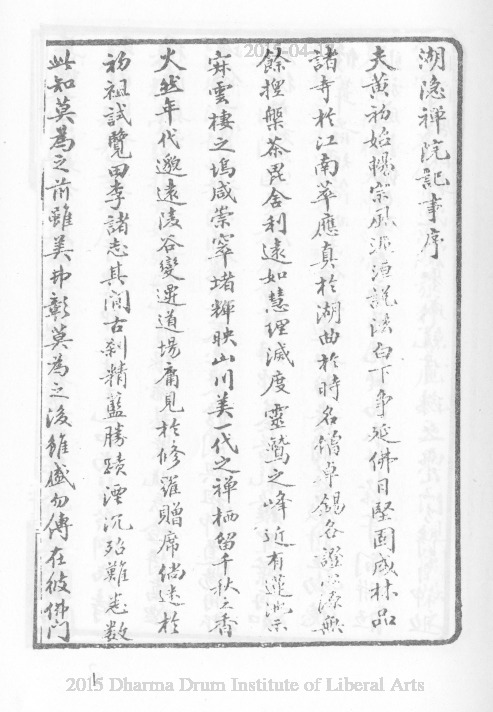 湖隐禅院記事序
夫黄初始暢宗風沸洹説法白下争延佛日堅固盛林品
諸寺於江南萃應真於湖曲於時名緇卓錫各證無
餘捏槃茶毘舍利遠如慧理滅度靈鷲之峰近有蓮池示
寂雲棲之塢咸崇窣堵輝映山川美一代之禅栖留千秋之香
火然年代邈遠陵谷變遷道場庸見於修羅贈席倘迷於
初祖試覽田李諸志其间古刹精藍勝蹟湮沉殆難悉数
此知莫為之前雖美弗彰莫為之後雖盛勿傳在彼佛門
1
2015 Dharma Drum Institute of Liberal Arts